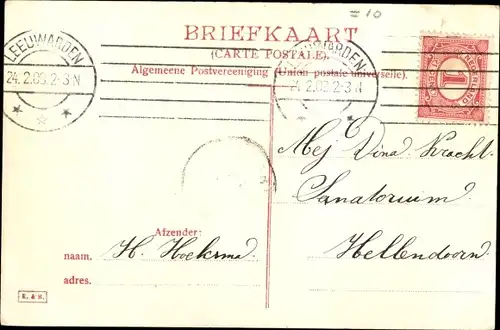 = 10
BRIEFKAART
(CARTE POSTALE).
Algemeene Postvereeniging (Union postale universelle).
LEEUWARDEN
24.2.09.2-3N
LEEUWARDEN
24.2.09.2-3N
NEDERLAND
1
Mej Dina Kracht.
Sanatorium
Hellendoorn.
Afzender:
naam. H. Hoeksma
adres.
R. & S.